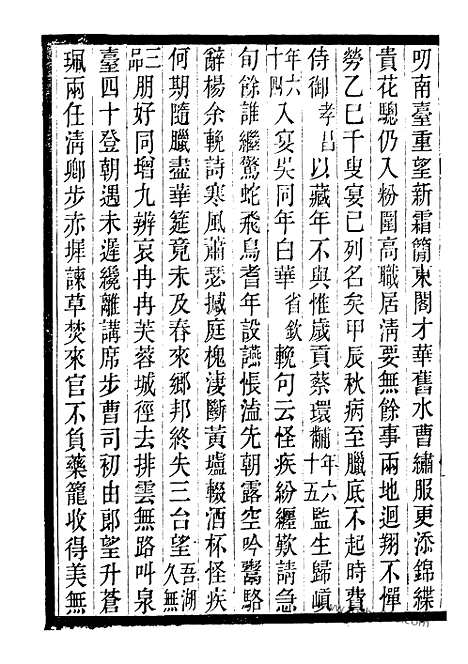 叨南臺重望新霜簡東閣才華舊水曹繡服更添錦緤
貴花驄仍入粉圍高職居淸要無餘事兩地迴翔不憚
勞乙巳千叟宴已列名矣甲辰秋病至臘底不起時費
侍御孝昌以藏年不與惟歲貢蔡環黼年六十五監生歸嵮
年六十四入宴吳同年白華省欽輓句云怪疾紛纏歎請急
旬餘誰繼驚蛇飛鳥耆年設讌悵溘先朝露空吟鷺駱
辭楊余輓詩寒風蕭瑟摵庭槐淒斷黃壚輟酒杯怪疾
何期隨臘盡華筵竟未及春來鄉邦終失三台望吾湖久無
三品朋好同增九辨哀冉冉芙蓉城徑去排雲無路叫泉
臺四十登朝遇未遲纔離講席步曹司初由郎望升蒼
珮兩任淸卿步赤墀諫草焚來官不負藥籠收得美無